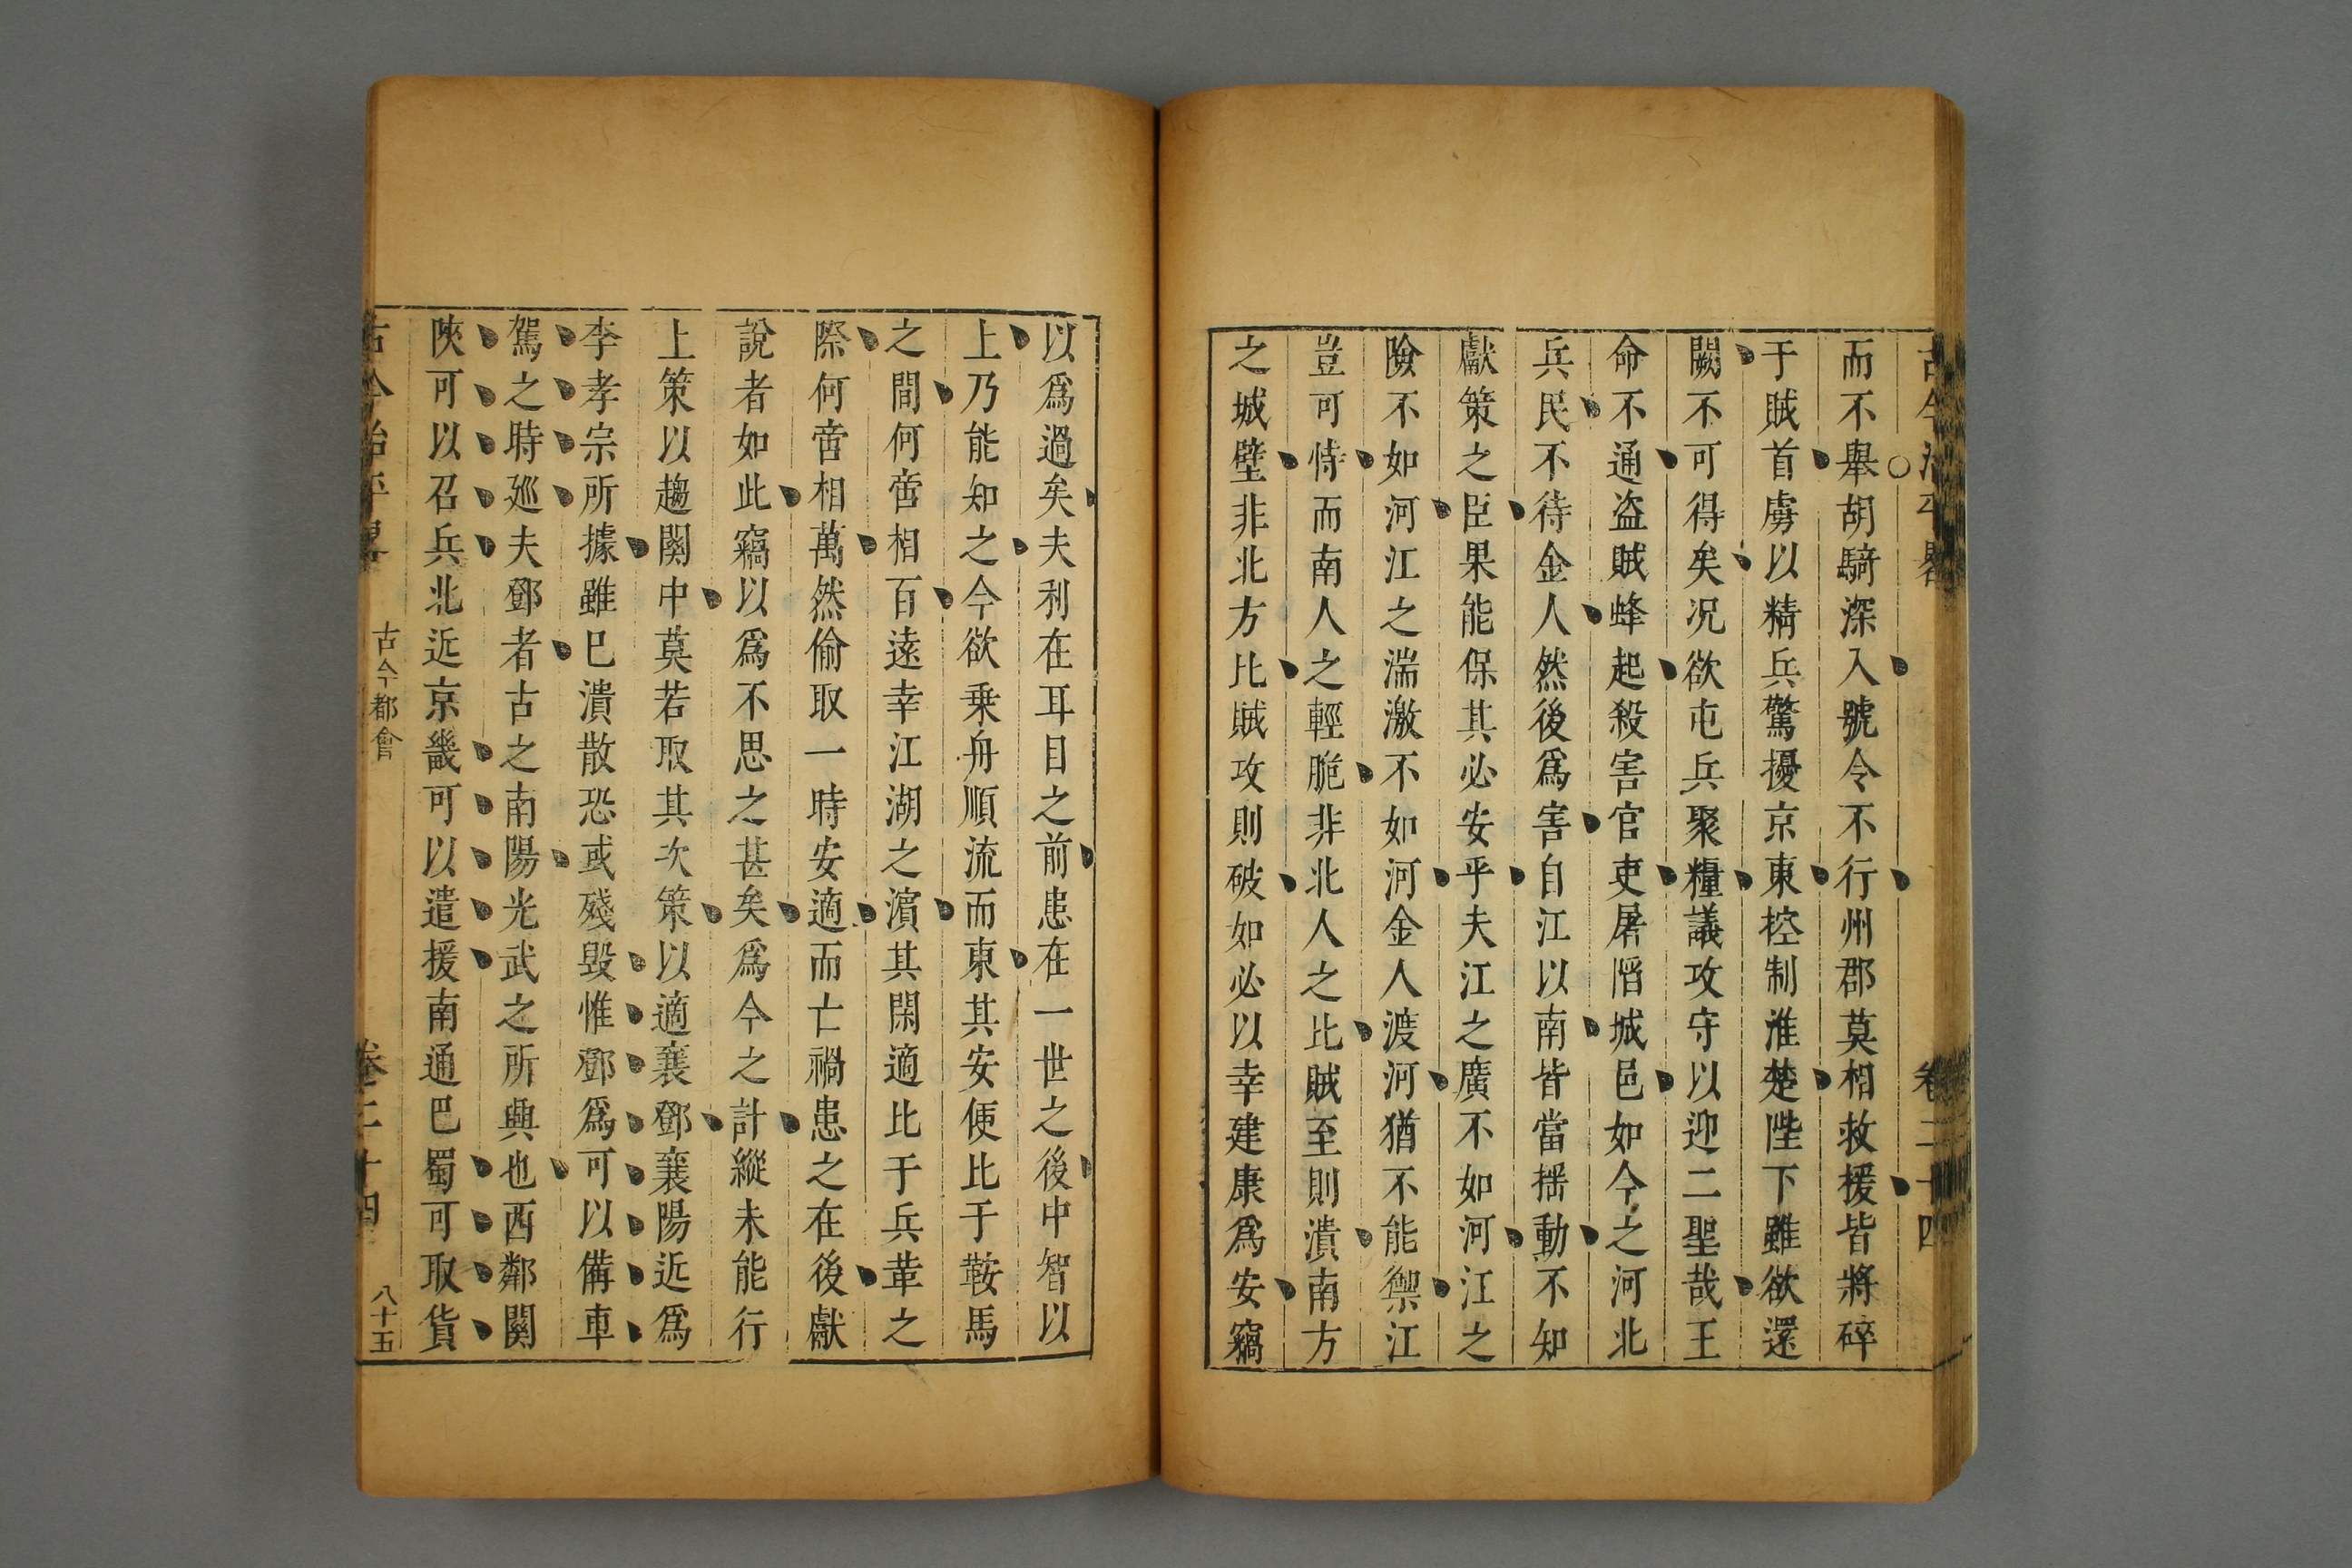 古今治平畧 卷二十四
而不舉胡騎深入號令不行州郡莫相救援皆將碎
于賊首虜以精兵驚擾京東控制淮楚陛下雖欲還
闕不可得矣况欲屯兵聚糧議攻守以迎二聖哉王
命不通盗賊蜂起殺害官吏屠㓎城邑如今之河北
兵民不待金人然後爲害自江以南皆當揺動不知
獻策之臣果能保其必安乎夫江之廣不如河江之
險不如河江之湍激不如河金人渡河猶不能禦江
豈可恃而南人之輕脆非北人之比賊至則潰南方
之城壁非北方比賊攻則破如必以幸建康爲安竊
以爲過矣夫利在耳目之前患在一世之後中智以
上乃能知之今欲乗舟順流而東其安便比于鞍馬
之間何啻相百逺幸江湖之濵其閑適比于兵革之
際何啻相萬然偷取一時安適而亡禍患之在後獻
說者如此竊以爲不思之甚矣爲今之計縱未能行
上策以趨關中莫若取其次策以適襄鄧襄陽近爲
李孝宗所據雖巳潰散恐或殘毀惟鄧爲可以備車
駕之時廵夫鄧者古之南陽光武之所興也西鄰關
陜可以召兵北近京畿可以遣援南通巴蜀可取貨
古今治平畧 古今都會 卷二十四 八十五